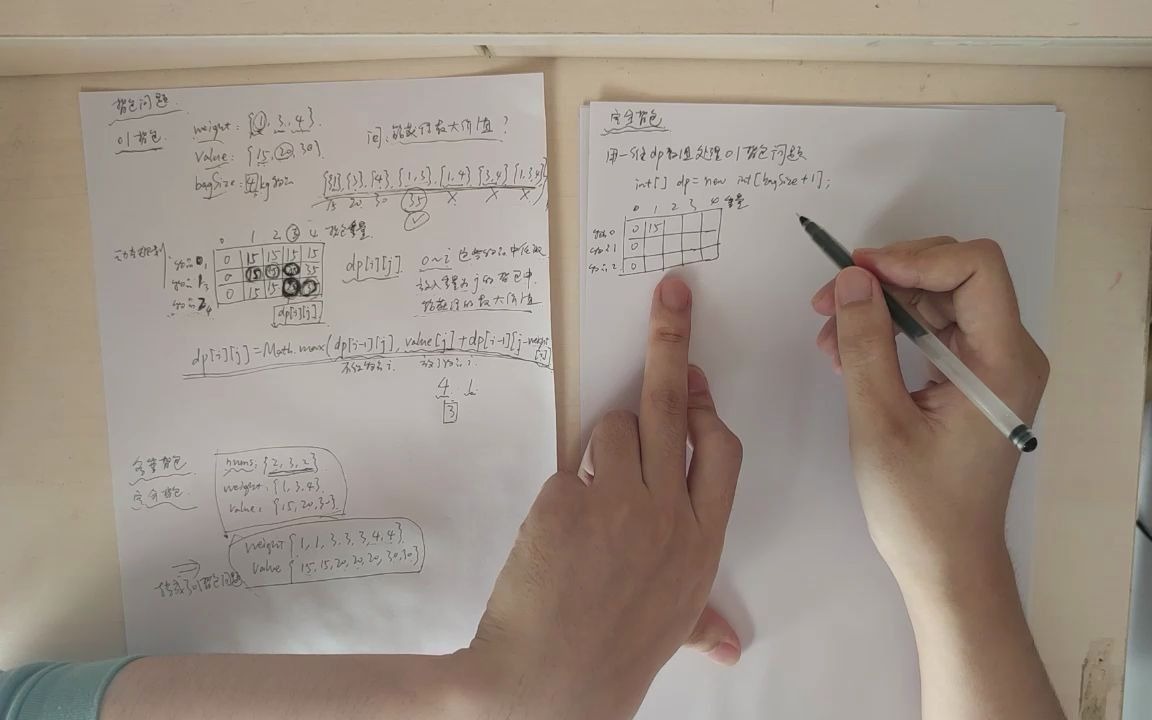 背包问题
01背包
weight: {1, 3, 4}
value: {15, 20, 30}
bagSize: 4kg
问:能获得最大价值?
{1}, {3}, {4}, {1,3}, {1,4}, {3,4}, {1,3,4}
15 20 30 35 X X X
0 1 2 3 4 背包重量
物品0 0 15 15 15 15
物品1 0 15 15 35
物品2 0 15 15
dp[i][j]
dp[i][j] 0~i 物品中任取
放入容量为j的背包中
能获得的最大价值
dp[i][j]=Math.max(dp[i-1][j], value[j]+dp[i-1][j-weight[i]]
不放物品i. 放了物品i.
4
3
多重背包
完全背包
nums: {2, 3, 2}
weight: {1, 3, 4}
value: {15, 20, 30}
weight {1, 1, 3, 3, 3, 4, 4}
value {15, 15, 20, 20, 20, 30, 30}
转成01背包问题
完全背包
用一维dp数组处理01背包问题
int[] dp = new int[bagSize+1];
0 1 2 3 4 重量
物品0 0 15
物品1 0
物品2 0